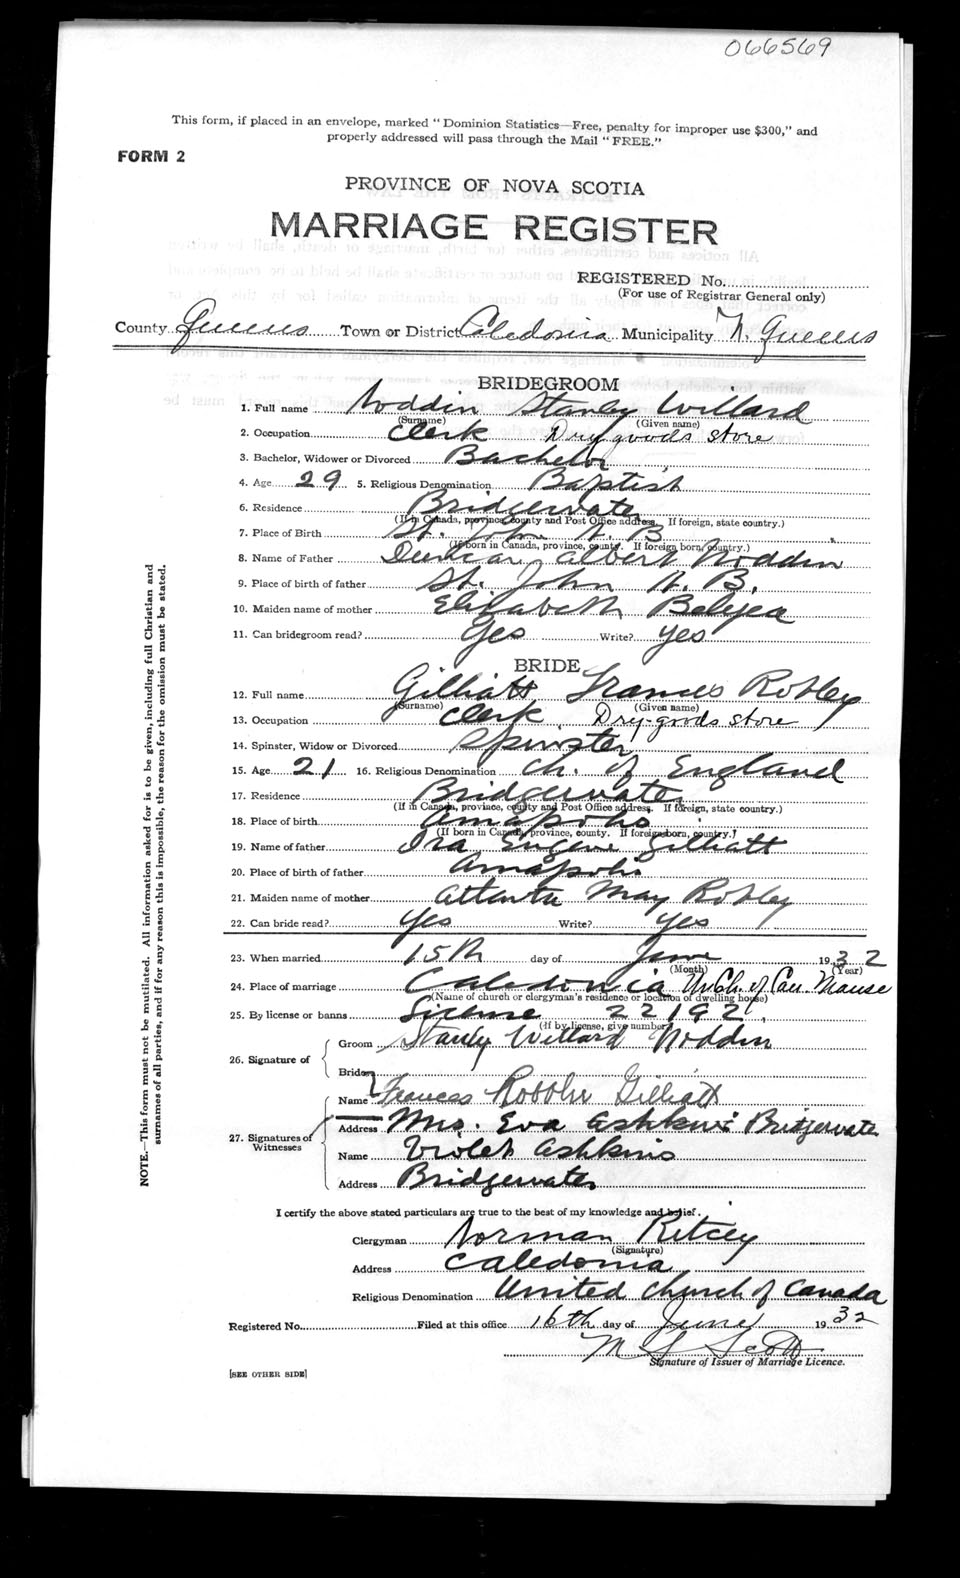 066569
This form, if placed in an envelope, marked "Dominion Statistics—Free, penalty for improper use $300," and
properly addressed will pass through the Mail "FREE."
FORM 2
PROVINCE OF NOVA SCOTIA
MARRIAGE REGISTER
REGISTERED No.
(For use of Registrar General only)
County Queens Town or District Caledonia Municipality N. Queens
BRIDEGROOM
1. Full name Noddin Stanley Willard
(Surname) (Given name)
2. Occupation Clerk Dry goods store
3. Bachelor, Widower or Divorced Bachelor
4. Age 29 5. Religious Denomination Baptist
6. Residence Bridgewater
(If in Canada, province, county and Post Office address. If foreign, state country.)
7. Place of Birth St. John N. B.
(If born in Canada, province, county. If foreign born, country.)
8. Name of Father Duncan Albert Noddin
9. Place of birth of father St. John N. B.
10. Maiden name of mother Elizabeth Belyea
11. Can bridegroom read? Yes Write? yes
BRIDE
12. Full name Gilliatt Frances Robley
(Surname) (Given name)
13. Occupation Clerk Dry-goods store
14. Spinster, Widow or Divorced Spinster
15. Age 21 16. Religious Denomination Ch. of England
17. Residence Bridgewater
(If in Canada, province, county and Post Office address. If foreign, state country.)
18. Place of birth Annapolis
(If born in Canada, province, county. If foreign born, country.)
19. Name of father Ira Eugene Gilliatt
20. Place of birth of father Annapolis
21. Maiden name of mother Atlanta May Robley
22. Can bride read? Yes Write? yes
23. When married 15th day of June 1932
(Month) (Year)
24. Place of marriage Caledonia Un. Ch. of Can. Manse
(Name of church or clergyman's residence or location of dwelling house)
25. By license or banns License 22192
(If by license, give number)
26. Signature of Groom Stanley Willard Noddin
Bride
Name Frances Robley Gilliatt
27. Signatures of Witnesses Address Mrs. Eva Ashkins Bridgewater
Name Violet Ashkins
Address Bridgewater
I certify the above stated particulars are true to the best of my knowledge and belief.
Clergyman Norman Ritcey
(Signature)
Address Caledonia
Religious Denomination United Church of Canada
Registered No. Filed at this office 16th day of June 1932
M S Scott
Signature of Issuer of Marriage Licence.
[SEE OTHER SIDE]
NOTE.—This form must not be mutilated. All information asked for is to be given, including full Christian and
surnames of all parties, and if for any reason this is impossible, the reason for the omission must be stated.